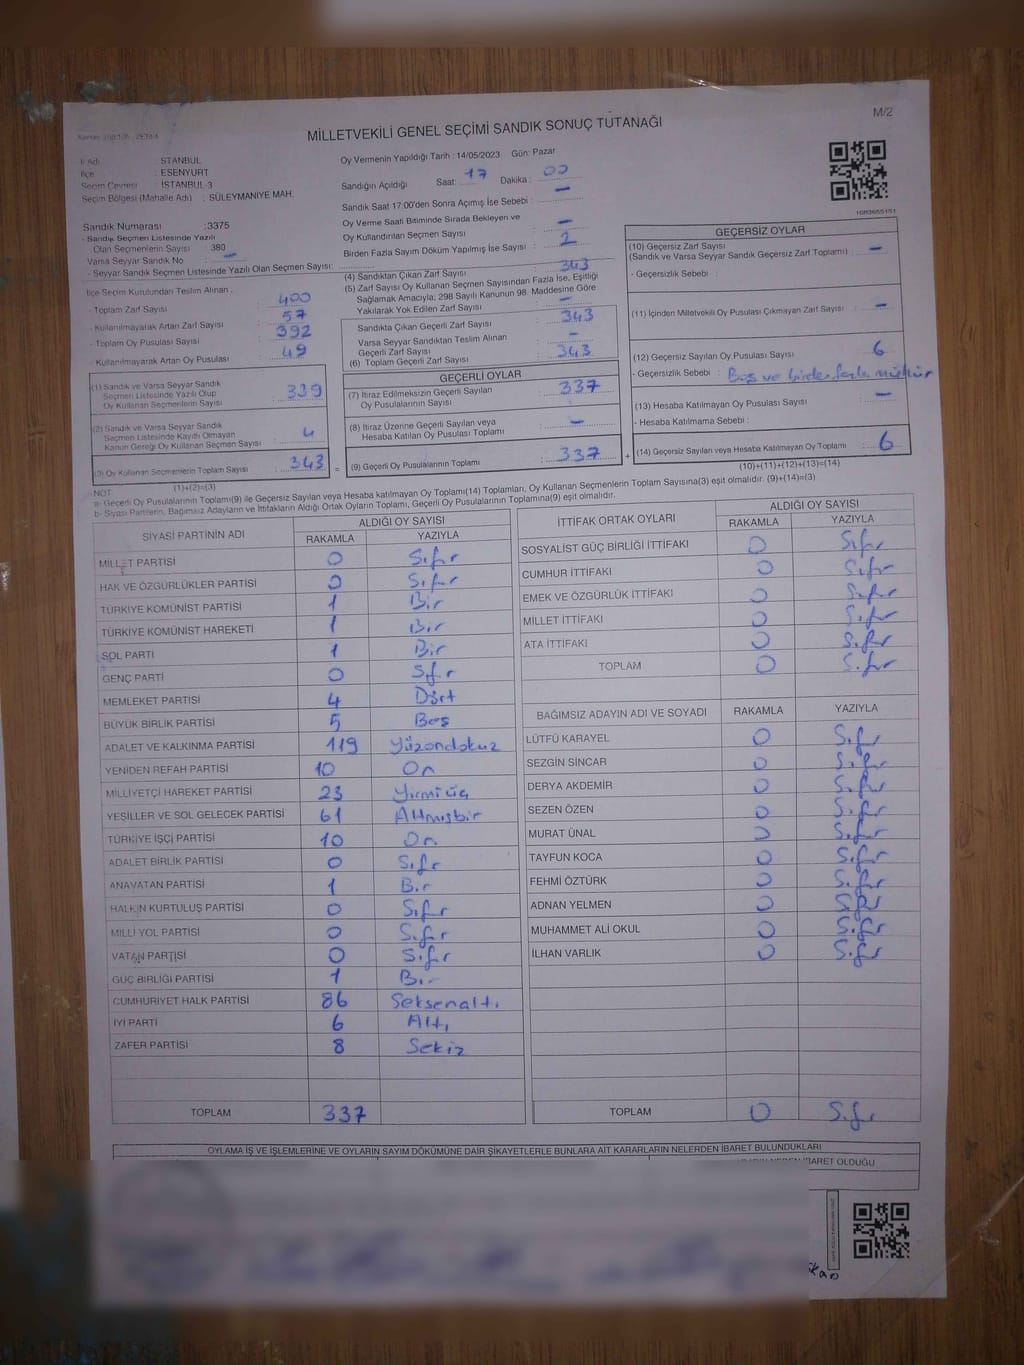 M/2
MİLLETVEKİLİ GENEL SEÇİMİ SANDIK SONUÇ TUTANAĞI
İl Adı : İSTANBUL
İlçe : ESENYURT
Seçim Çevresi : İSTANBUL-3
Seçim Bölgesi (Mahalle Adı) : SÜLEYMANİYE MAH.
Sandık Numarası :3375
- Sandık Seçmen Listesinde Yazılı
Olan Seçmenlerin Sayısı : 380
Varsa Seyyar Sandık No : –
- Seyyar Sandık Seçmen Listesinde Yazılı Olan Seçmen Sayısı:
İlçe Seçim Kurulundan Teslim Alınan :
- Toplam Zarf Sayısı : 400
- Kullanılmayarak Artan Zarf Sayısı : 57
- Toplam Oy Pusulası Sayısı : 392
- Kullanılmayarak Artan Oy Pusulası : 49
(1) Sandık ve Varsa Seyyar Sandık
Seçmen Listesinde Yazılı Olup
Oy Kullanan Seçmenlerin Sayısı : 339
(2) Sandık ve Varsa Seyyar Sandık
Seçmen Listesinde Kayıtlı Olmayan
Kanun Gereği Oy Kullanan Seçmen Sayısı : 4
(3) Oy Kullanan Seçmenlerin Toplam Sayısı : 343 =
(1)+(2)=(3)
Oy Vermenin Yapıldığı Tarih : 14/05/2023 Gün: Pazar
Sandığın Açıldığı Saat: 17 Dakika : 00
Sandık Saat 17:00'den Sonra Açımış İse Sebebi : –
Oy Verme Saati Bitiminde Sırada Bekleyen ve
Oy Kullandırılan Seçmen Sayısı : –
Birden Fazla Sayım Döküm Yapılmış İse Sayısı : 2
(4) Sandıktan Çıkan Zarf Sayısı : 343
(5) Zarf Sayısı Oy Kullanan Seçmen Sayısından Fazla İse, Eşitliği
Sağlamak Amacıyla; 298 Sayılı Kanunun 98. Maddesine Göre
Yakılarak Yok Edilen Zarf Sayısı : –
Sandıkta Çıkan Geçerli Zarf Sayısı : 343
Varsa Seyyar Sandıktan Teslim Alınan
Geçerli Zarf Sayısı : –
(6) Toplam Geçerli Zarf Sayısı : 343
GEÇERLİ OYLAR
(7) İtiraz Edilmeksizin Geçerli Sayılan
Oy Pusulalarının Sayısı : 337
(8) İtiraz Üzerine Geçerli Sayılan veya
Hesaba Katılan Oy Pusulası Toplamı : –
(9) Geçerli Oy Pusulalarının Toplamı : 337 +
1083655151
GEÇERSİZ OYLAR
(10) Geçersiz Zarf Sayısı
(Sandık ve Varsa Seyyar Sandık Geçersiz Zarf Toplamı) : –
- Geçersizlik Sebebi :
(11) İçinden Milletvekili Oy Pusulası Çıkmayan Zarf Sayısı : –
(12) Geçersiz Sayılan Oy Pusulası Sayısı : 6
- Geçersizlik Sebebi : Boş ve birden fazla mühür
(13) Hesaba Katılmayan Oy Pusulası Sayısı : –
- Hesaba Katılmama Sebebi :
(14) Geçersiz Sayılan veya Hesaba Katılmayan Oy Toplamı : 6
(10)+(11)+(12)+(13)=(14)
NOT
a- Geçerli Oy Pusulalarının Toplamı(9) ile Geçersiz Sayılan veya Hesaba katılmayan Oy Toplamı(14) Toplamları, Oy Kullanan Seçmenlerin Toplam Sayısına(3) eşit olmalıdır. (9)+(14)=(3)
b- Siyasi Partilerin, Bağımsız Adayların ve İttifakların Aldığı Ortak Oyların Toplamı, Geçerli Oy Pusulalarının Toplamına(9) eşit olmalıdır.
SİYASİ PARTİNİN ADI ALDIĞI OY SAYISI
RAKAMLA YAZIYLA
MİLLET PARTİSİ 0 Sıfır
HAK VE ÖZGÜRLÜKLER PARTİSİ 0 Sıfır
TÜRKİYE KOMÜNİST PARTİSİ 1 Bir
TÜRKİYE KOMÜNİST HAREKETİ 1 Bir
SOL PARTİ 1 Bir
GENÇ PARTİ 0 Sıfır
MEMLEKET PARTİSİ 4 Dört
BÜYÜK BİRLİK PARTİSİ 5 Beş
ADALET VE KALKINMA PARTİSİ 119 Yüzondokuz
YENİDEN REFAH PARTİSİ 10 On
MİLLİYETÇİ HAREKET PARTİSİ 23 Yirmiüç
YEŞİLLER VE SOL GELECEK PARTİSİ 61 Altmışbir
TÜRKİYE İŞÇİ PARTİSİ 10 On
ADALET BİRLİK PARTİSİ 0 Sıfır
ANAVATAN PARTİSİ 1 Bir
HALKIN KURTULUŞ PARTİSİ 0 Sıfır
MİLLİ YOL PARTİSİ 0 Sıfır
VATAN PARTİSİ 0 Sıfır
GÜÇ BİRLİĞİ PARTİSİ 1 Bir
CUMHURİYET HALK PARTİSİ 86 Seksenaltı
İYİ PARTİ 6 Altı
ZAFER PARTİSİ 8 Sekiz
TOPLAM 337
İTTİFAK ORTAK OYLARI ALDIĞI OY SAYISI
RAKAMLA YAZIYLA
SOSYALİST GÜÇ BİRLİĞİ İTTİFAKI 0 Sıfır
CUMHUR İTTİFAKI 0 Sıfır
EMEK VE ÖZGÜRLÜK İTTİFAKI 0 Sıfır
MİLLET İTTİFAKI 0 Sıfır
ATA İTTİFAKI 0 Sıfır
TOPLAM 0 Sıfır
BAĞIMSIZ ADAYIN ADI VE SOYADI RAKAMLA YAZIYLA
LÜTFÜ KARAYEL 0 Sıfır
SEZGİN SİNCAR 0 Sıfır
DERYA AKDEMİR 0 Sıfır
SEZEN ÖZEN 0 Sıfır
MURAT ÜNAL 0 Sıfır
TAYFUN KOCA 0 Sıfır
FEHMİ ÖZTÜRK 0 Sıfır
ADNAN YELMEN 0 Sıfır
MUHAMMET ALİ OKUL 0 Sıfır
İLHAN VARLIK 0 Sıfır
TOPLAM 0 Sıfır
OYLAMA İŞ VE İŞLEMLERİNE VE OYLARIN SAYIM DÖKÜMÜNE DAİR ŞİKAYETLERLE BUNLARA AİT KARARLARIN NELERDEN İBARET BULUNDUKLARI
İBARET OLDUĞU